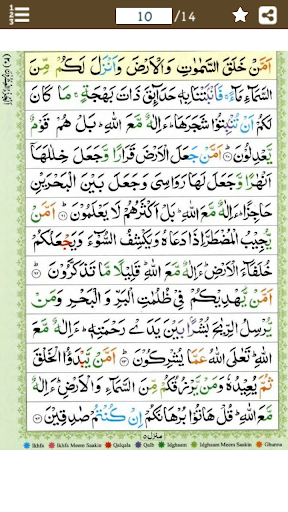 10 /14
اَمَّنْ خَلَقَ السَّمٰوٰتِ وَالْاَرْضَ وَاَنْزَلَ لَكُمْ مِّنَ
السَّمَآءِ مَآءً ۚ فَاَنْۢبَتْنَا بِهٖ حَدَآئِقَ ذَاتَ بَهْجَةٍ ۚ مَا كَانَ
لَكُمْ اَنْ تُنْۢبِتُوْا شَجَرَهَا ؕ ءَاِلٰهٌ مَّعَ اللّٰهِ ؕ بَلْ هُمْ قَوْمٌ
يَّعْدِلُوْنَ ۟ؕ اَمَّنْ جَعَلَ الْاَرْضَ قَرَارًا وَّجَعَلَ خِلٰلَهَاۤ
اَنْهٰرًا وَّجَعَلَ لَهَا رَوَاسِيَ وَجَعَلَ بَيْنَ الْبَحْرَيْنِ
حَاجِزًا ؕ ءَاِلٰهٌ مَّعَ اللّٰهِ ؕ بَلْ اَكْثَرُهُمْ لَا يَعْلَمُوْنَ ۟ؕ اَمَّنْ
يُّجِيْبُ الْمُضْطَرَّ اِذَا دَعَاهُ وَيَكْشِفُ السُّوْٓءَ وَيَجْعَلُكُمْ
خُلَفَآءَ الْاَرْضِ ؕ ءَاِلٰهٌ مَّعَ اللّٰهِ ؕ قَلِيْلًا مَّا تَذَكَّرُوْنَ ۟ؕ
اَمَّنْ يَّهْدِيْكُمْ فِيْ ظُلُمٰتِ الْبَرِّ وَ الْبَحْرِ وَمَنْ
يُّرْسِلُ الرِّيٰحَ بُشْرًۢا بَيْنَ يَدَيْ رَحْمَتِهٖ ؕ ءَاِلٰهٌ مَّعَ
اللّٰهِ ؕ تَعٰلَى اللّٰهُ عَمَّا يُشْرِكُوْنَ ۟ؕ اَمَّنْ يَّبْدَؤُا الْخَلْقَ
ثُمَّ يُعِيْدُهٗ وَمَنْ يَّرْزُقُكُمْ مِّنَ السَّمَآءِ وَالْاَرْضِ ؕ ءَاِلٰهٌ
مَّعَ اللّٰهِ ؕ قُلْ هَاتُوْا بُرْهَانَكُمْ اِنْ كُنْتُمْ صٰدِقِيْنَ ۟
منزل ٥
Ikhfa Ikhfa Meem Saakin Qalqala Qalb Idghaam Idghaam Meem Saakin Ghunna